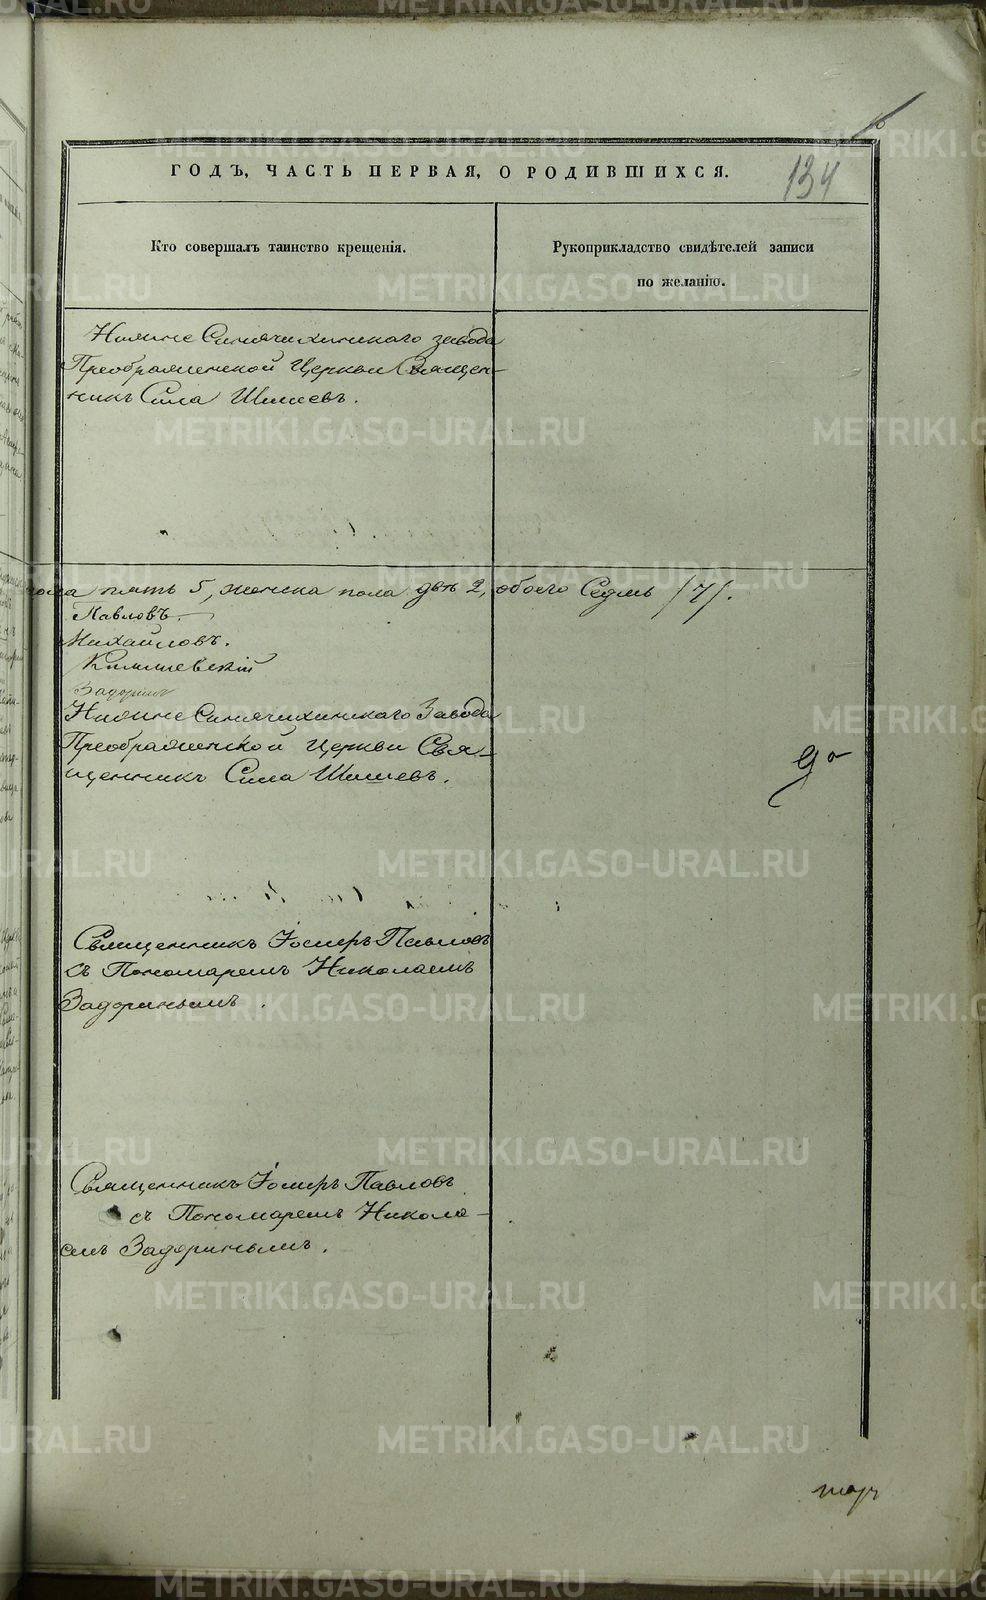 134
ГОДЪ, ЧАСТЬ ПЕРВАЯ, О РОДИВШИХСЯ.
Кто совершалъ таинство крещенія.
Рукоприкладство свидѣтелей записи
по желанію.
Нижне Синячихинскаго завода
Преображенской Церкви Священ-
никъ Сила Шишевъ.
пола пять 5, женска пола двѣ 2, обоего Седмь /7/.
Павловъ.
Михайловъ.
Задоринъ
Нижне Синячихинскаго Завода
Преображенской Церкви Свя-
щенникъ Сила Шишевъ.
Священникъ Іосифъ Павловъ
съ Пономаремъ Николаемъ
Задоринымъ.
Священникъ Іосифъ Павловъ
съ Пономаремъ Никола-
емъ Задоринымъ.
METRIKI.GASO-URAL.RU